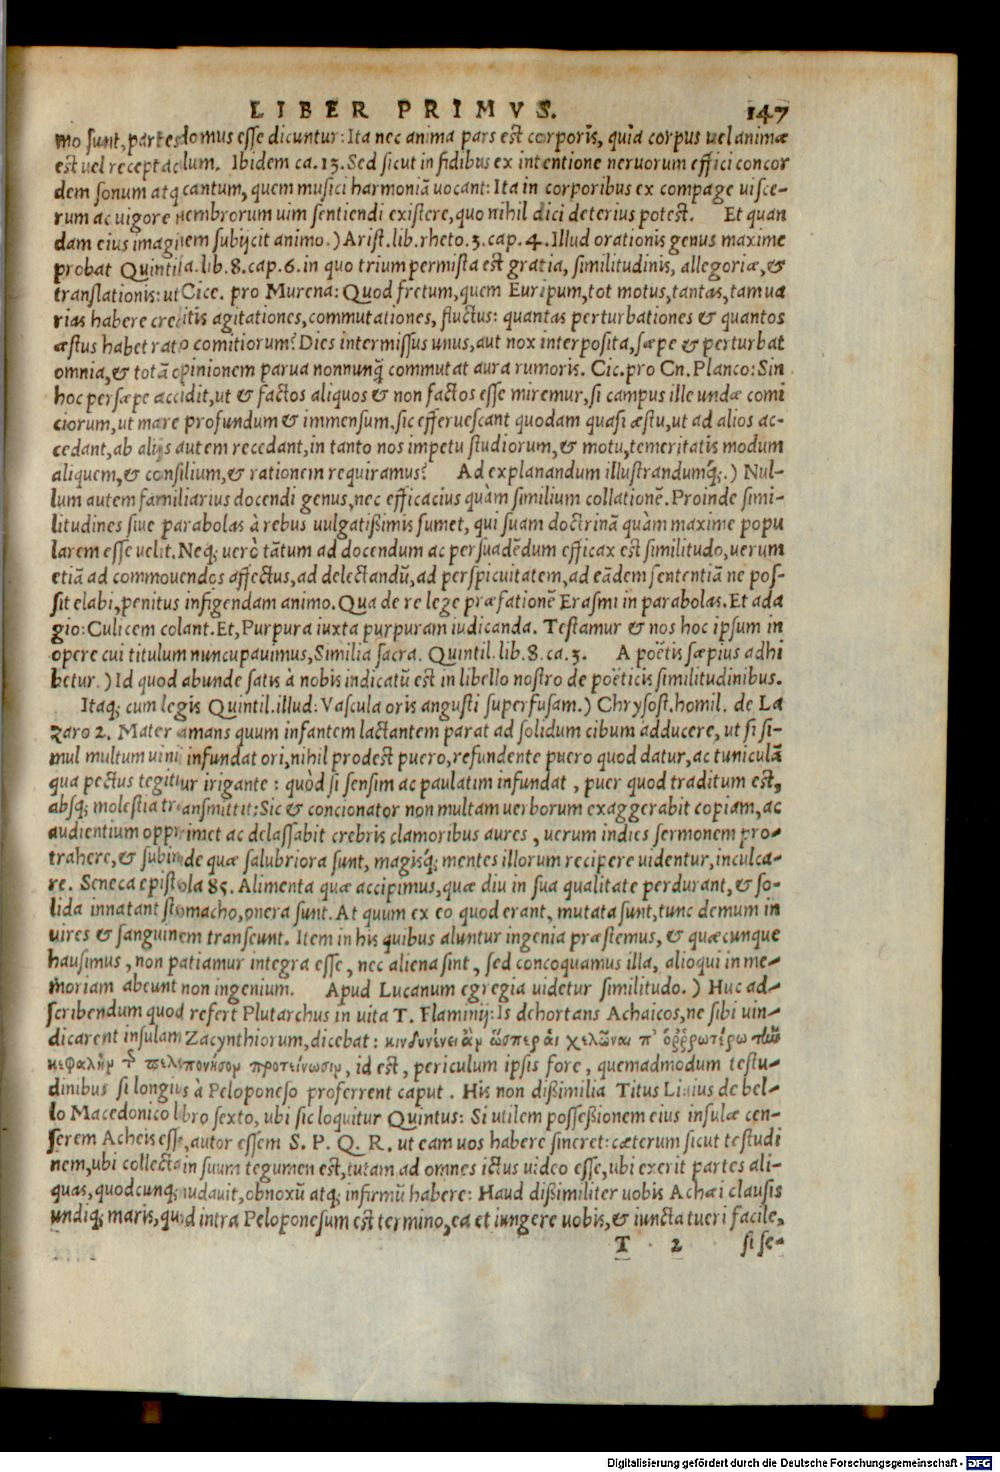 LIBER PRIMVS. 147
mo sunt, partes domus esse dicuntur: Ita nec anima pars est corporis, quia corpus uel animæ
est uel receptaculum. Ibidem ca. 13. Sed sicut in fidibus ex intentione neruorum effici concor
dem sonum atq; cantum, quem musici harmoniã uocant: Ita in corporibus ex compage uisce-
rum ac uigore membrorum uim sentiendi existere, quo nihil dici deterius potest. Et quan
dam eius imaginem subijcit animo.) Arist. lib. rheto. 3. cap. 4. Illud orationis genus maxime
probat Quintila. lib. 8. cap. 6. in quo trium permista est gratia, similitudinis, allegoriæ, &
translationis: ut Cice. pro Murena: Quod fretum, quem Euripum, tot motus, tantas, tam ua
rias habere creditis agitationes, commutationes, fluctus: quantas perturbationes & quantos
æstus habet ratio comitiorum? Dies intermissus unus, aut nox interposita, sæpe & perturbat
omnia, & totã opinionem parua nonnunq̃ commutat aura rumoris. Cic. pro Cn. Planco: Sin
hoc persæpe accidit, ut & factos aliquos & non factos esse miremur, si campus ille undæ comi
ciorum, ut mare profundum & immensum, sic efferuescant quodam quasi æstu, ut ad alios ac-
cedant, ab alijs autem recedant, in tanto nos impetu studiorum, & motu, temeritatis modum
aliquem, & consilium, & rationem requiramus? Ad explanandum illustrandumq́;.) Nul-
lum autem familiarius docendi genus, nec efficacius quàm similium collationẽ. Proinde simi-
litudines siue parabolas à rebus uulgatißimis sumet, qui suam doctrinã quàm maxime popu
larem esse uelit. Neq; uerò tãtum ad docendum ac persuadẽdum efficax est similitudo, uerum
etiã ad commouendos affectus, ad delectandũ, ad perspicuitatem, ad eãdem sententiã ne pos-
sit elabi, penitus infigendam animo. Qua de re lege præfationẽ Erasmi in parabolas. Et ada
gio: Culicem colant. Et, Purpura iuxta purpuram iudicanda. Testamur & nos hoc ipsum in
opere cui titulum nuncupauimus, Similia sacra. Quintil. lib. 8. ca. 3. A poëtis sæpius adhi
betur.) Id quod abunde satis à nobis indicatũ est in libello nostro de poëticis similitudinibus.
Itaq; cum legis Quintil. illud: Vascula oris angusti superfusam.) Chrysost. homil. de La
zaro 2. Mater amans quum infantem lactantem parat ad solidum cibum adducere, ut si si-
mul multum uini infundat ori, nihil prodest puero, refundente puero quod datur, ac tuniculã
qua pectus tegitur irigante: quòd si sensim ac paulatim infundat, puer quod traditum est,
absq; molestia transmittit: Sic & concionator non multam uerborum exaggerabit copiam, ac
audientium opprimet ac delassabit crebris clamoribus aures, uerum indies sermonem pro-
trahere, & subinde quæ salubriora sunt, magisq́; mentes illorum recipere uidentur, inculca-
re. Seneca epistola 85. Alimenta quæ accipimus, quæ diu in sua qualitate perdurant, & so-
lida innatant stomacho, onera sunt. At quum ex eo quod erant, mutata sunt, tunc demum in
uires & sanguinem transeunt. Item in his quibus aluntur ingenia præstemus, & quæcunque
hausimus, non patiamur integra esse, nec aliena sint, sed concoquamus illa, alioqui in me-
moriam abeunt non ingenium. Apud Lucanum egregia uidetur similitudo.) Huc ad-
scribendum quod refert Plutarchus in uita T. Flaminij: Is dehortans Achaicos, ne sibi uin-
dicarent insulam Zacynthiorum, dicebat: κινδυνεύειν ἂν ὥσπερ αἱ χελῶναι
κεφαλὴν πελοπονήσου προτείνωσιν, id est, periculum ipsis fore, quemadmodum testu-
dinibus si longius à Peloponeso proferrent caput. His non dißimilia Titus Liuius de bel-
lo Macedonico libro sexto, ubi sic loquitur Quintus: Si utilem possessionem eius insulæ cen-
serem Acheis esse, autor essem S. P. Q. R. ut eam uos habere sineret: cæterum sicut testudi
nem, ubi collecta in suum tegumen est, tutam ad omnes ictus uideo esse, ubi exerit partes ali-
quas, quodcunq; nudauit, obnoxũ atq; infirmũ habere: Haud dißimiliter uobis Achæi clausis
undiq; maris, quod intra Peloponesum est termino, ea et iungere uobis, & iuncta tueri facile,
T 2 si se-
Digitalisierung gefördert durch die Deutsche Forschungsgemeinschaft - DFG